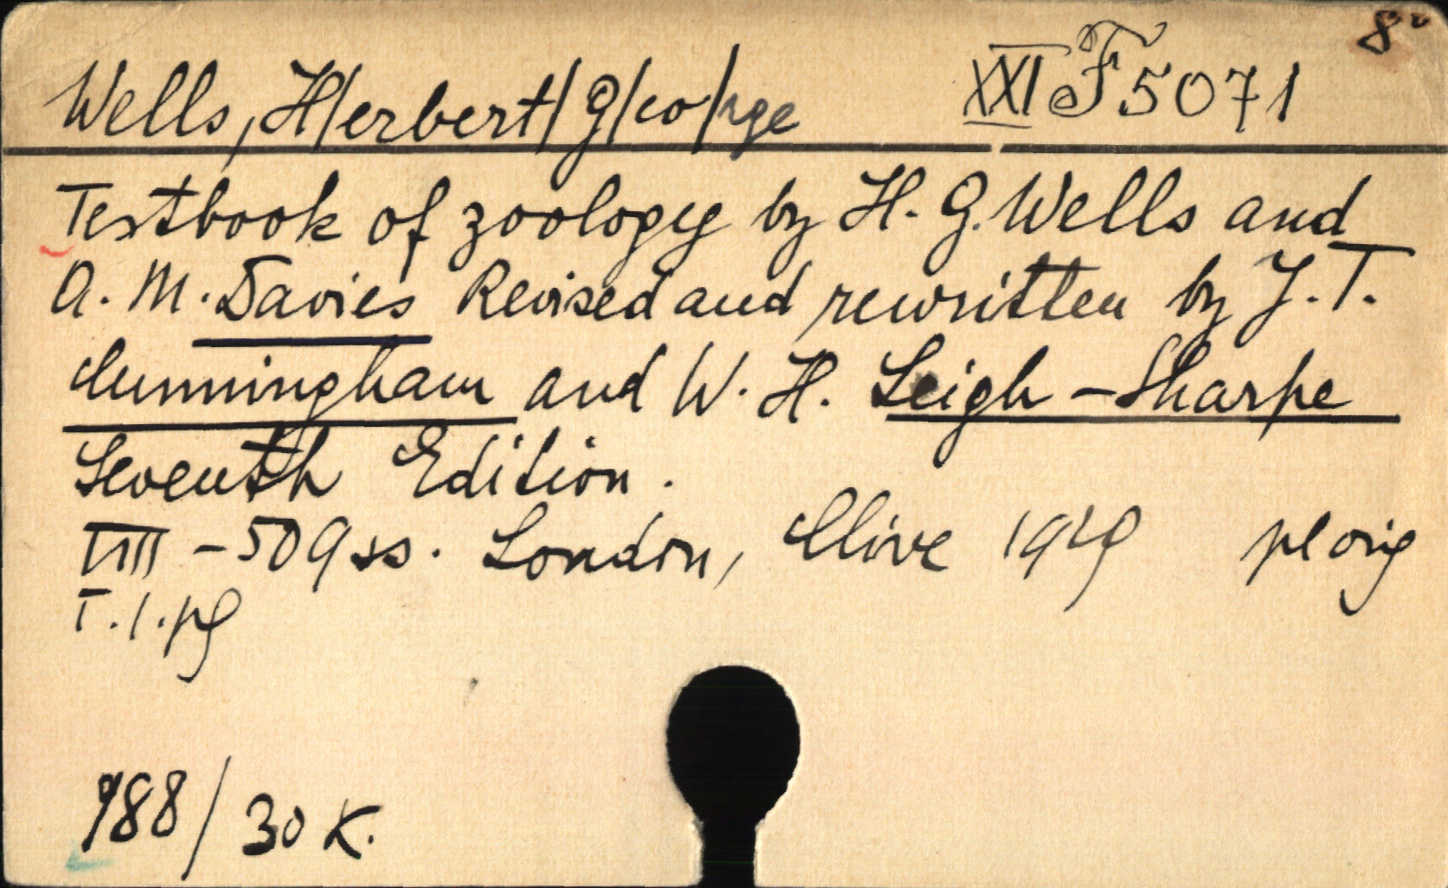 8°
Wells, H/erbert/ G/eo/rge XXI F 5071
Textbook of zoology by H. G. Wells and
A. M. Davies Revised and rewritten by J. T.
Cunningham and W. H. Leigh-Sharpe
Seventh Edition.
VIII - 509 ss. London, Clive 1929 pl orig
T. 1. pł
988/30 K.